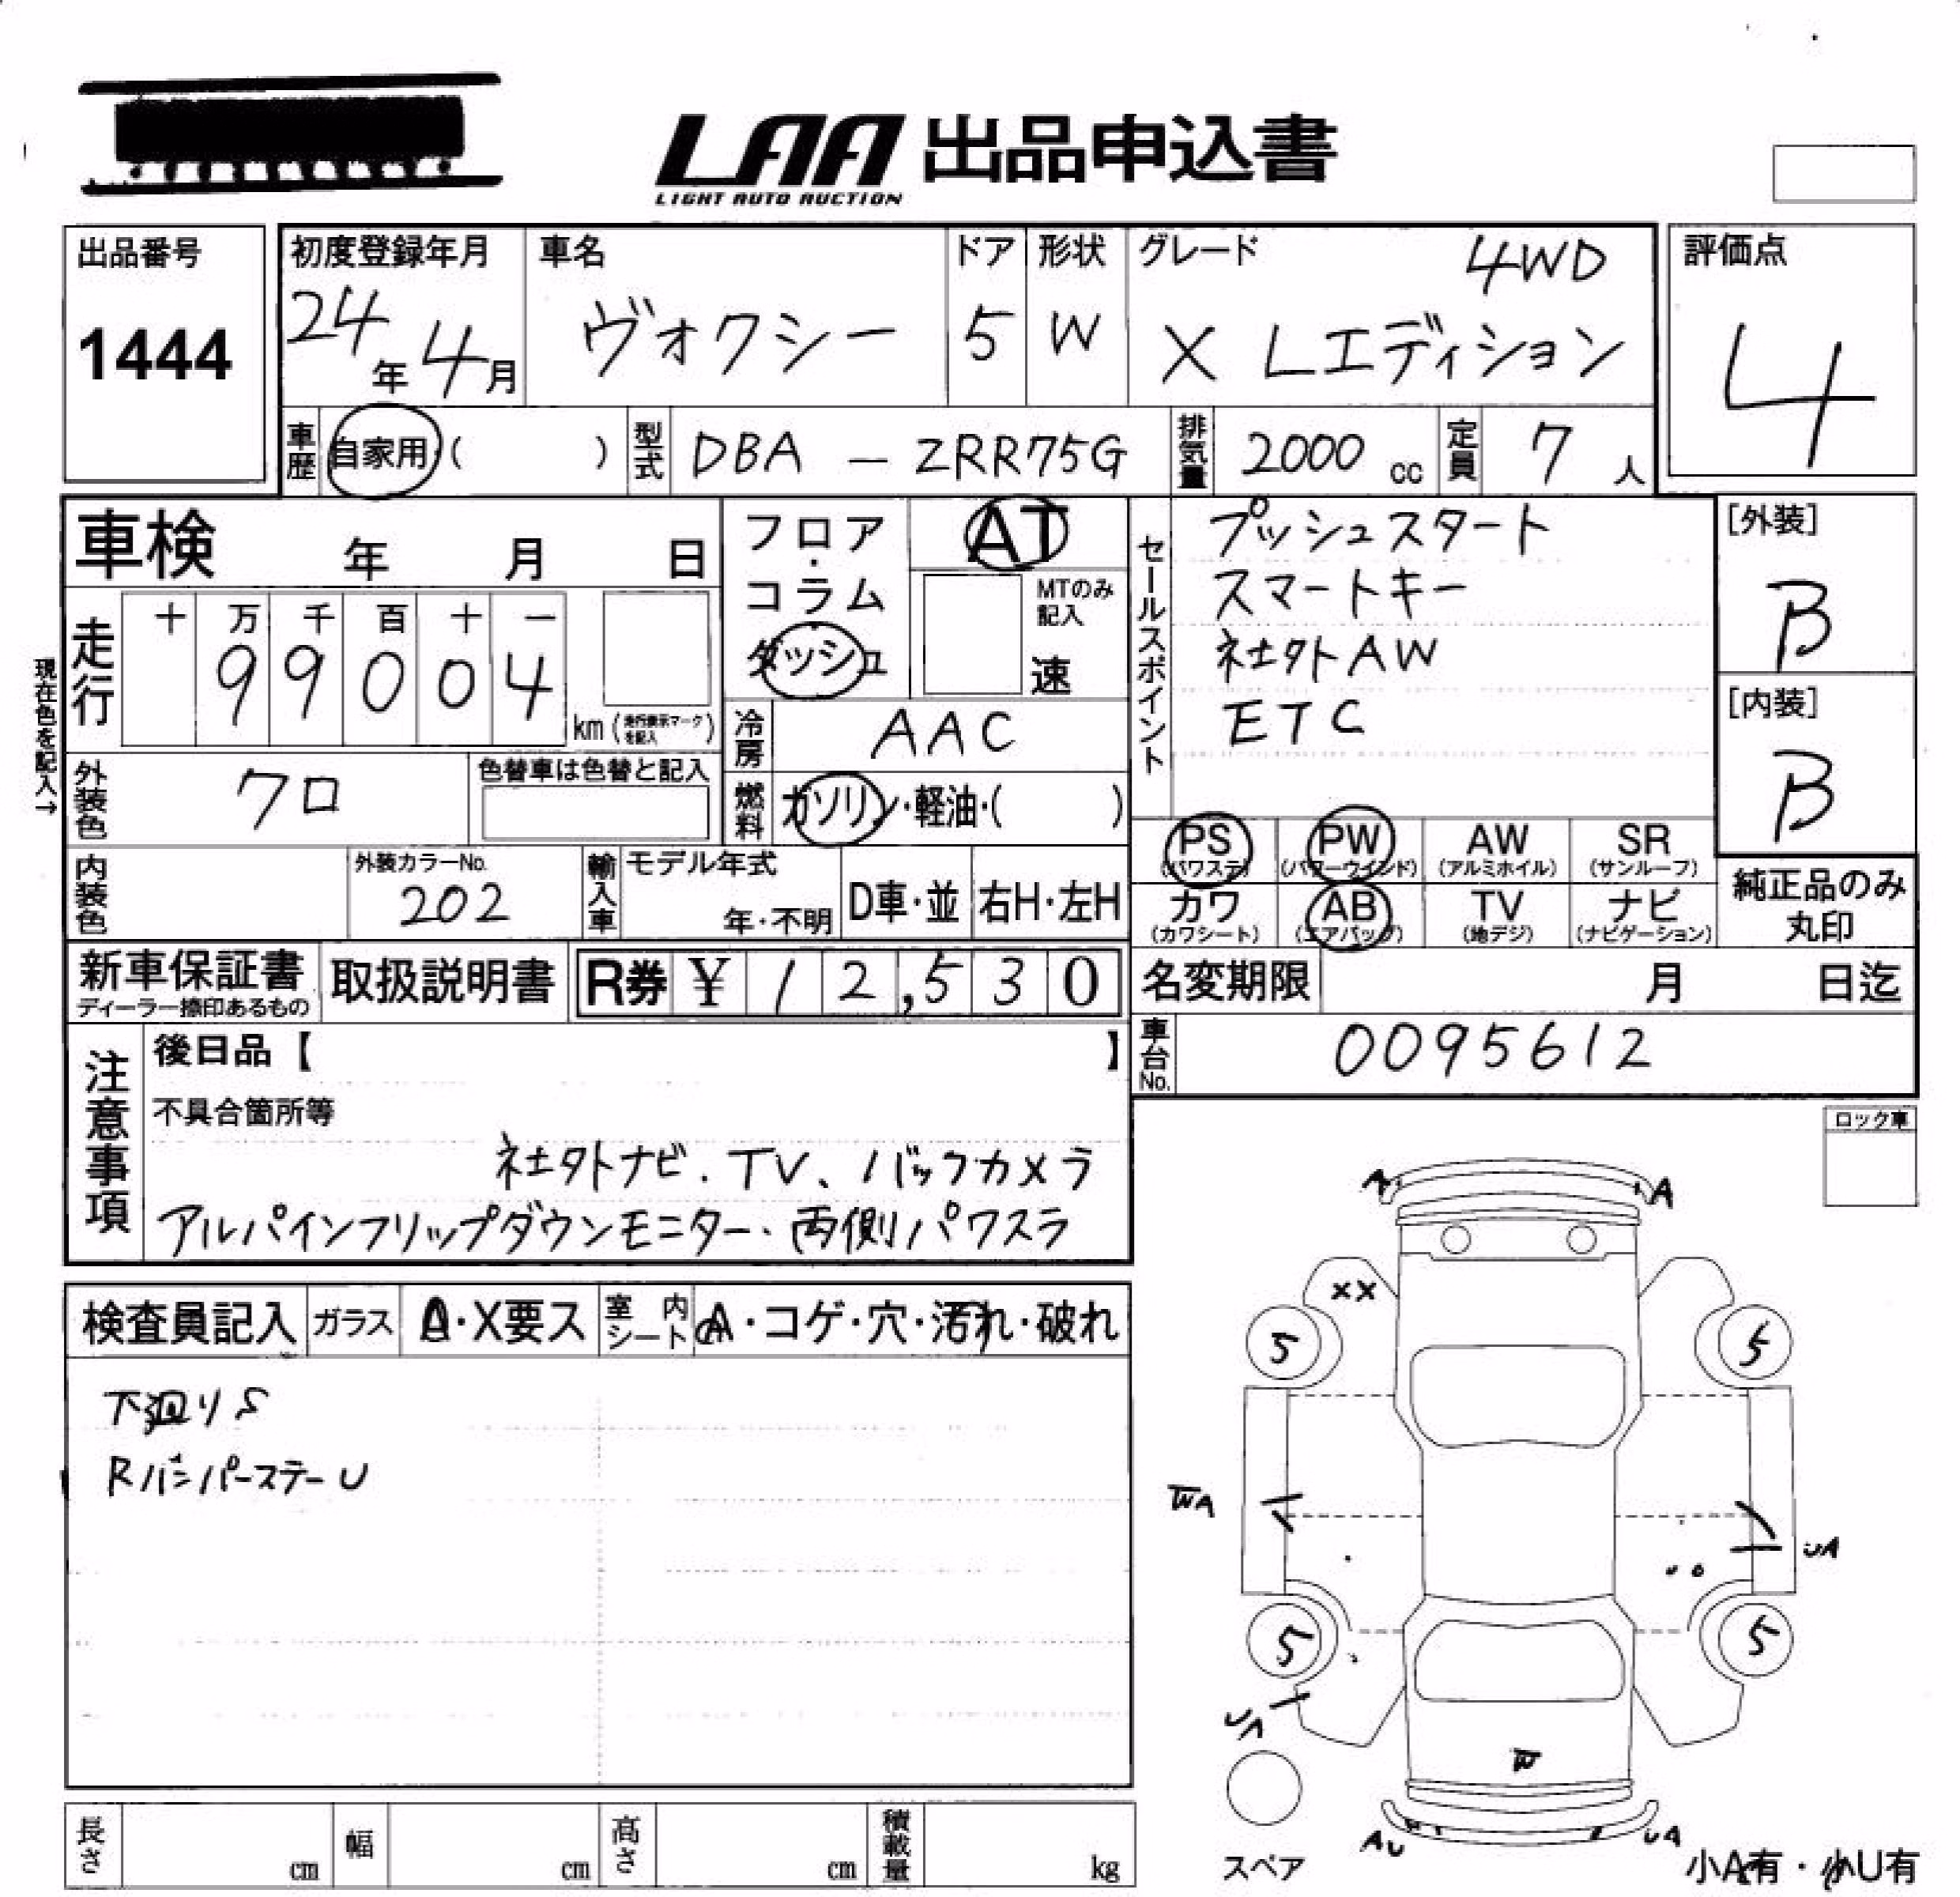 LAA 出品申込書
LIGHT AUTO AUCTION
出品番号
1444
初度登録年月
24年 4月
車名
ヴォクシー
ドア
5
形状
W
グレード
4WD
X Lエディション
評価点
4
車歴 自家用 ( )
型式 DBA − ZRR75G
排気量 2000 cc
定員 7 人
車検 年 月 日
フロア・コラム
ダッシュ
AT
MTのみ記入
速
セールスポイント
プッシュスタート
スマートキー
社外AW
ETC
[外装]
B
[内装]
B
現在色を記入→
走行
十 万 千 百 十 一
9 9 0 0 4
km (走行表示マークを記入)
冷房 AAC
外装色 クロ
色替車は色替と記入
燃料 ガソリン・軽油・( )
PS (パワステ)
PW (パワーウインド)
AW (アルミホイル)
SR (サンルーフ)
カワ (カワシート)
AB (エアバッグ)
TV (地デジ)
ナビ (ナビゲーション)
純正品のみ丸印
内装色
外装カラーNo.
202
輸入車
モデル年式
年・不明
D車・並
右H・左H
新車保証書
ディーラー捺印あるもの
取扱説明書
R券 ¥ 12,530
名変期限 月 日迄
車台No. 0095612
注意事項
後日品【 】
不具合箇所等
社外ナビ.TV、バックカメラ
アルパインフリップダウンモニター・両側パワスラ
ロック車
検査員記入
ガラス
A・X要ス
室内シート
A・コゲ・穴・汚れ・破れ
下廻りS
RバンパーステーU
A A
XX
5 5
WA
UA
5 5
UA
W
AU UA
スペア
小A有・小U有
長さ cm
幅 cm
高さ cm
積載量 kg